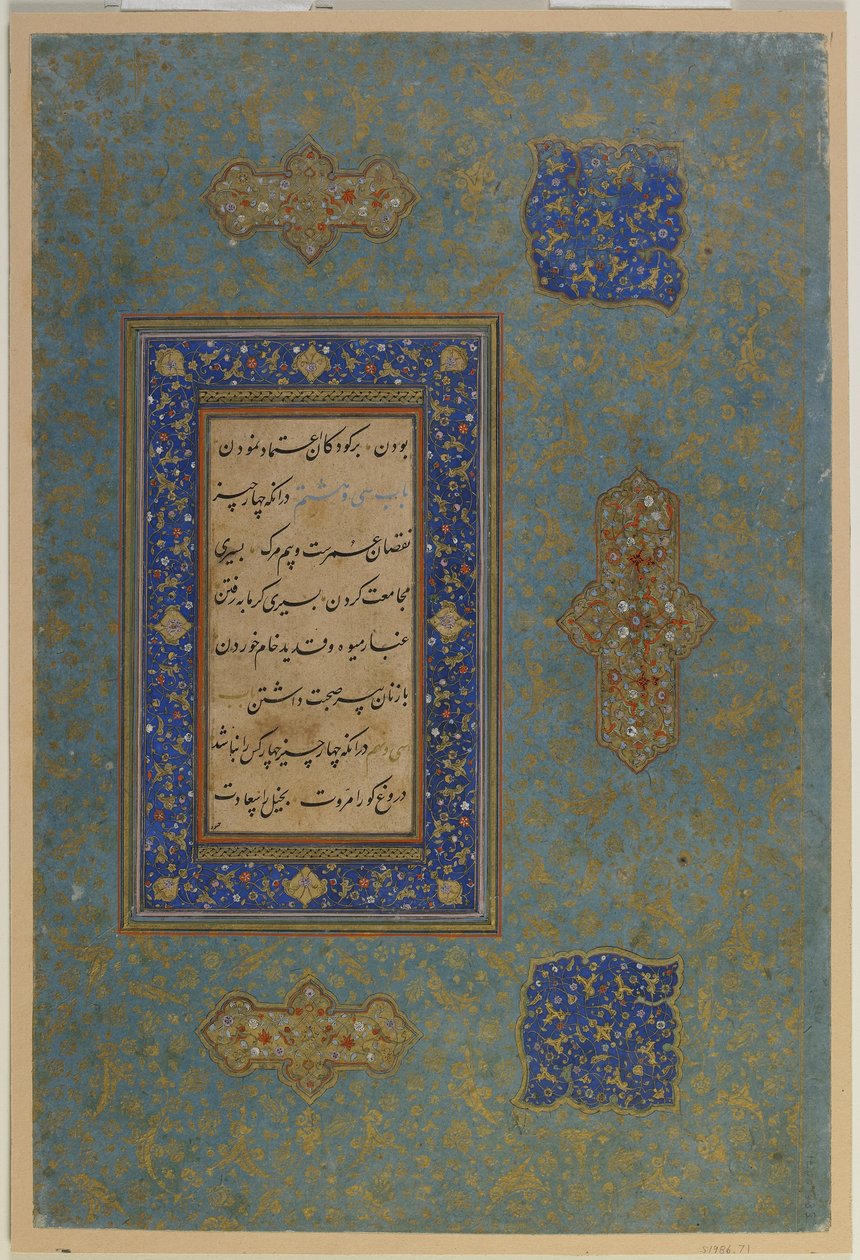 بودن برکودکان اعتماد نمودن
باب سی و هشتم در انکه چهار چیز
نقصان عمرست و بیم مرک بسیری
مجامعت کردن بسیری کرمابه رفتن
میوه و قدید خام خوردن
با زنان پیر صحبت داشتن باب
سی و نهم در انکه چهار چیز چهار کس را نباشد
دروغ کو را مروت بخیل را
S1986.71